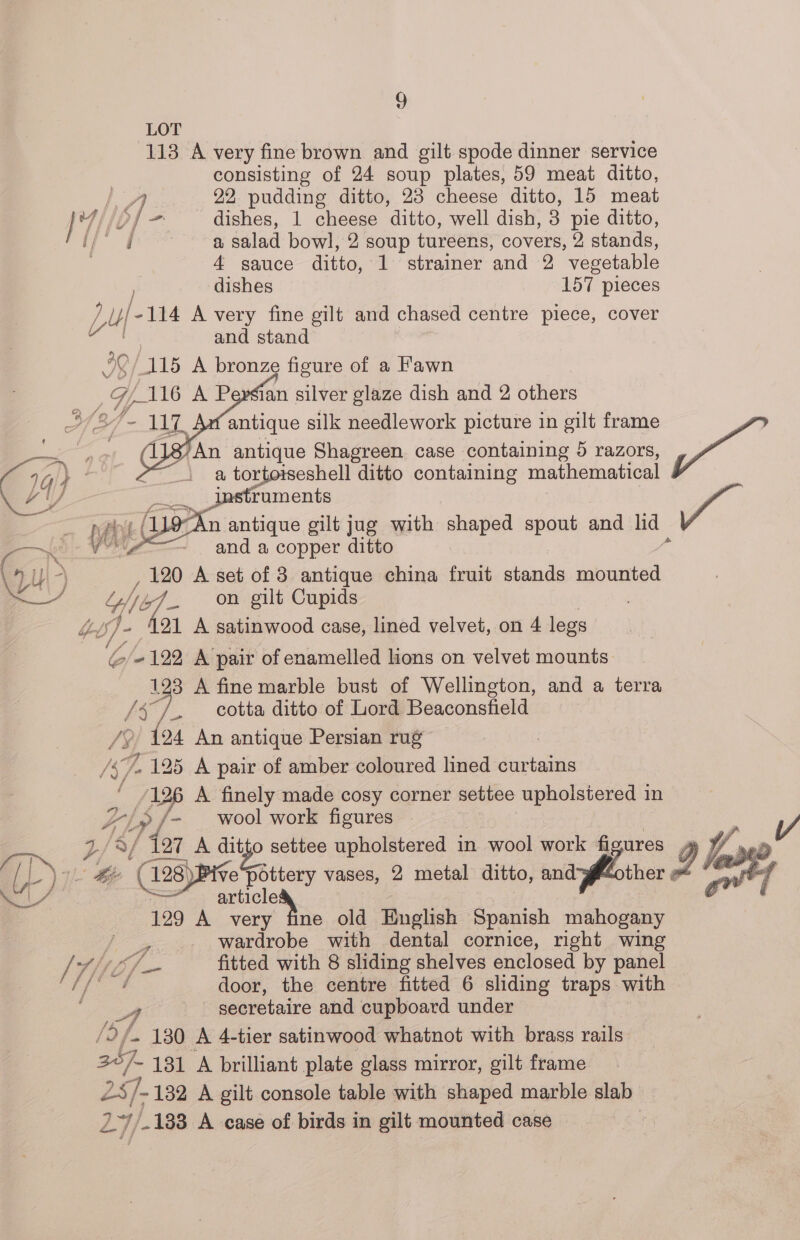 9
LOT
113 A very fine brown and gilt spode dinner service
consisting of 24 soup plates, 59 meat ditto,
22 pudding ditto, 23 cheese ditto, 15 meat
dishes, 1 cheese ditto, well dish, 3 pie ditto,
a salad bowl, 2 soup tureens, covers, 2 stands,
4 sauce ditto, 1 strainer and 2 vegetable
dishes 157 pieces
114 A very fine gilt and chased centre piece, cover
and stand
115 A bronze figure of a Fawn
116 A Persian silver glaze dish and 2 others
117 An antique silk needlework picture in gilt frame
118 An antique Shagreen case containing 5 razors,
a tortoiseshell ditto containing mathematical
instruments
119 An antique gilt jug with shaped spout and lid
and a copper ditto
120 A set of 3 antique china fruit stands mounted
on gilt Cupids
121 A satinwood case, lined velvet, on 4 legs
122 A pair of enamelled lions on velvet mounts
123 A fine marble bust of Wellington, and a terra
15/- cotta ditto of Lord Beaconsfield
124 An antique Persian rug
15/- 125 A pair of amber coloured lined curtains
126 A finely made cosy corner settee upholstered in
wool work figures
127 A ditto settee upholstered in wool work figures
128 Five pottery vases, 2 metal ditto, and other
articles
129 A very fine old English Spanish mahogany
wardrobe with dental cornice, right wing
fitted with 8 sliding shelves enclosed by panel
door, the centre fitted 6 sliding traps with
secretaire and cupboard under
130 A 4-tier satinwood whatnot with brass rails
131 A brilliant plate glass mirror, gilt frame
25/- 132 A gilt console table with shaped marble slab
27/- 133 A case of birds in gilt mounted case